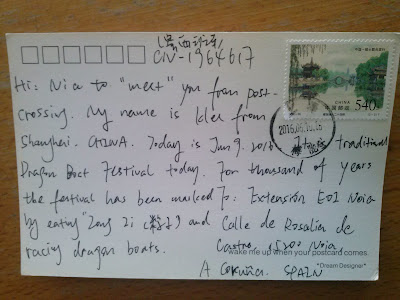 CN-1964617
Hi: Nice to "meet" you from post-
crossing. My name is Idea from
Shanghai. CHINA. Today is Jun 9. 2016. It's a traditional
Dragon Boat Festival today. For thousand of years
the festival has been marked
by eating "Zong Zi (粽子)" and
racing dragon boats.
To: Extensión EOI Noia
Calle de Rosalía de
Castro 15200 Noia
A Coruña. SPAIN
wake me up when your postcard comes.
"Dream Designer"
CHINA
中国邮政
540
2016.06.10